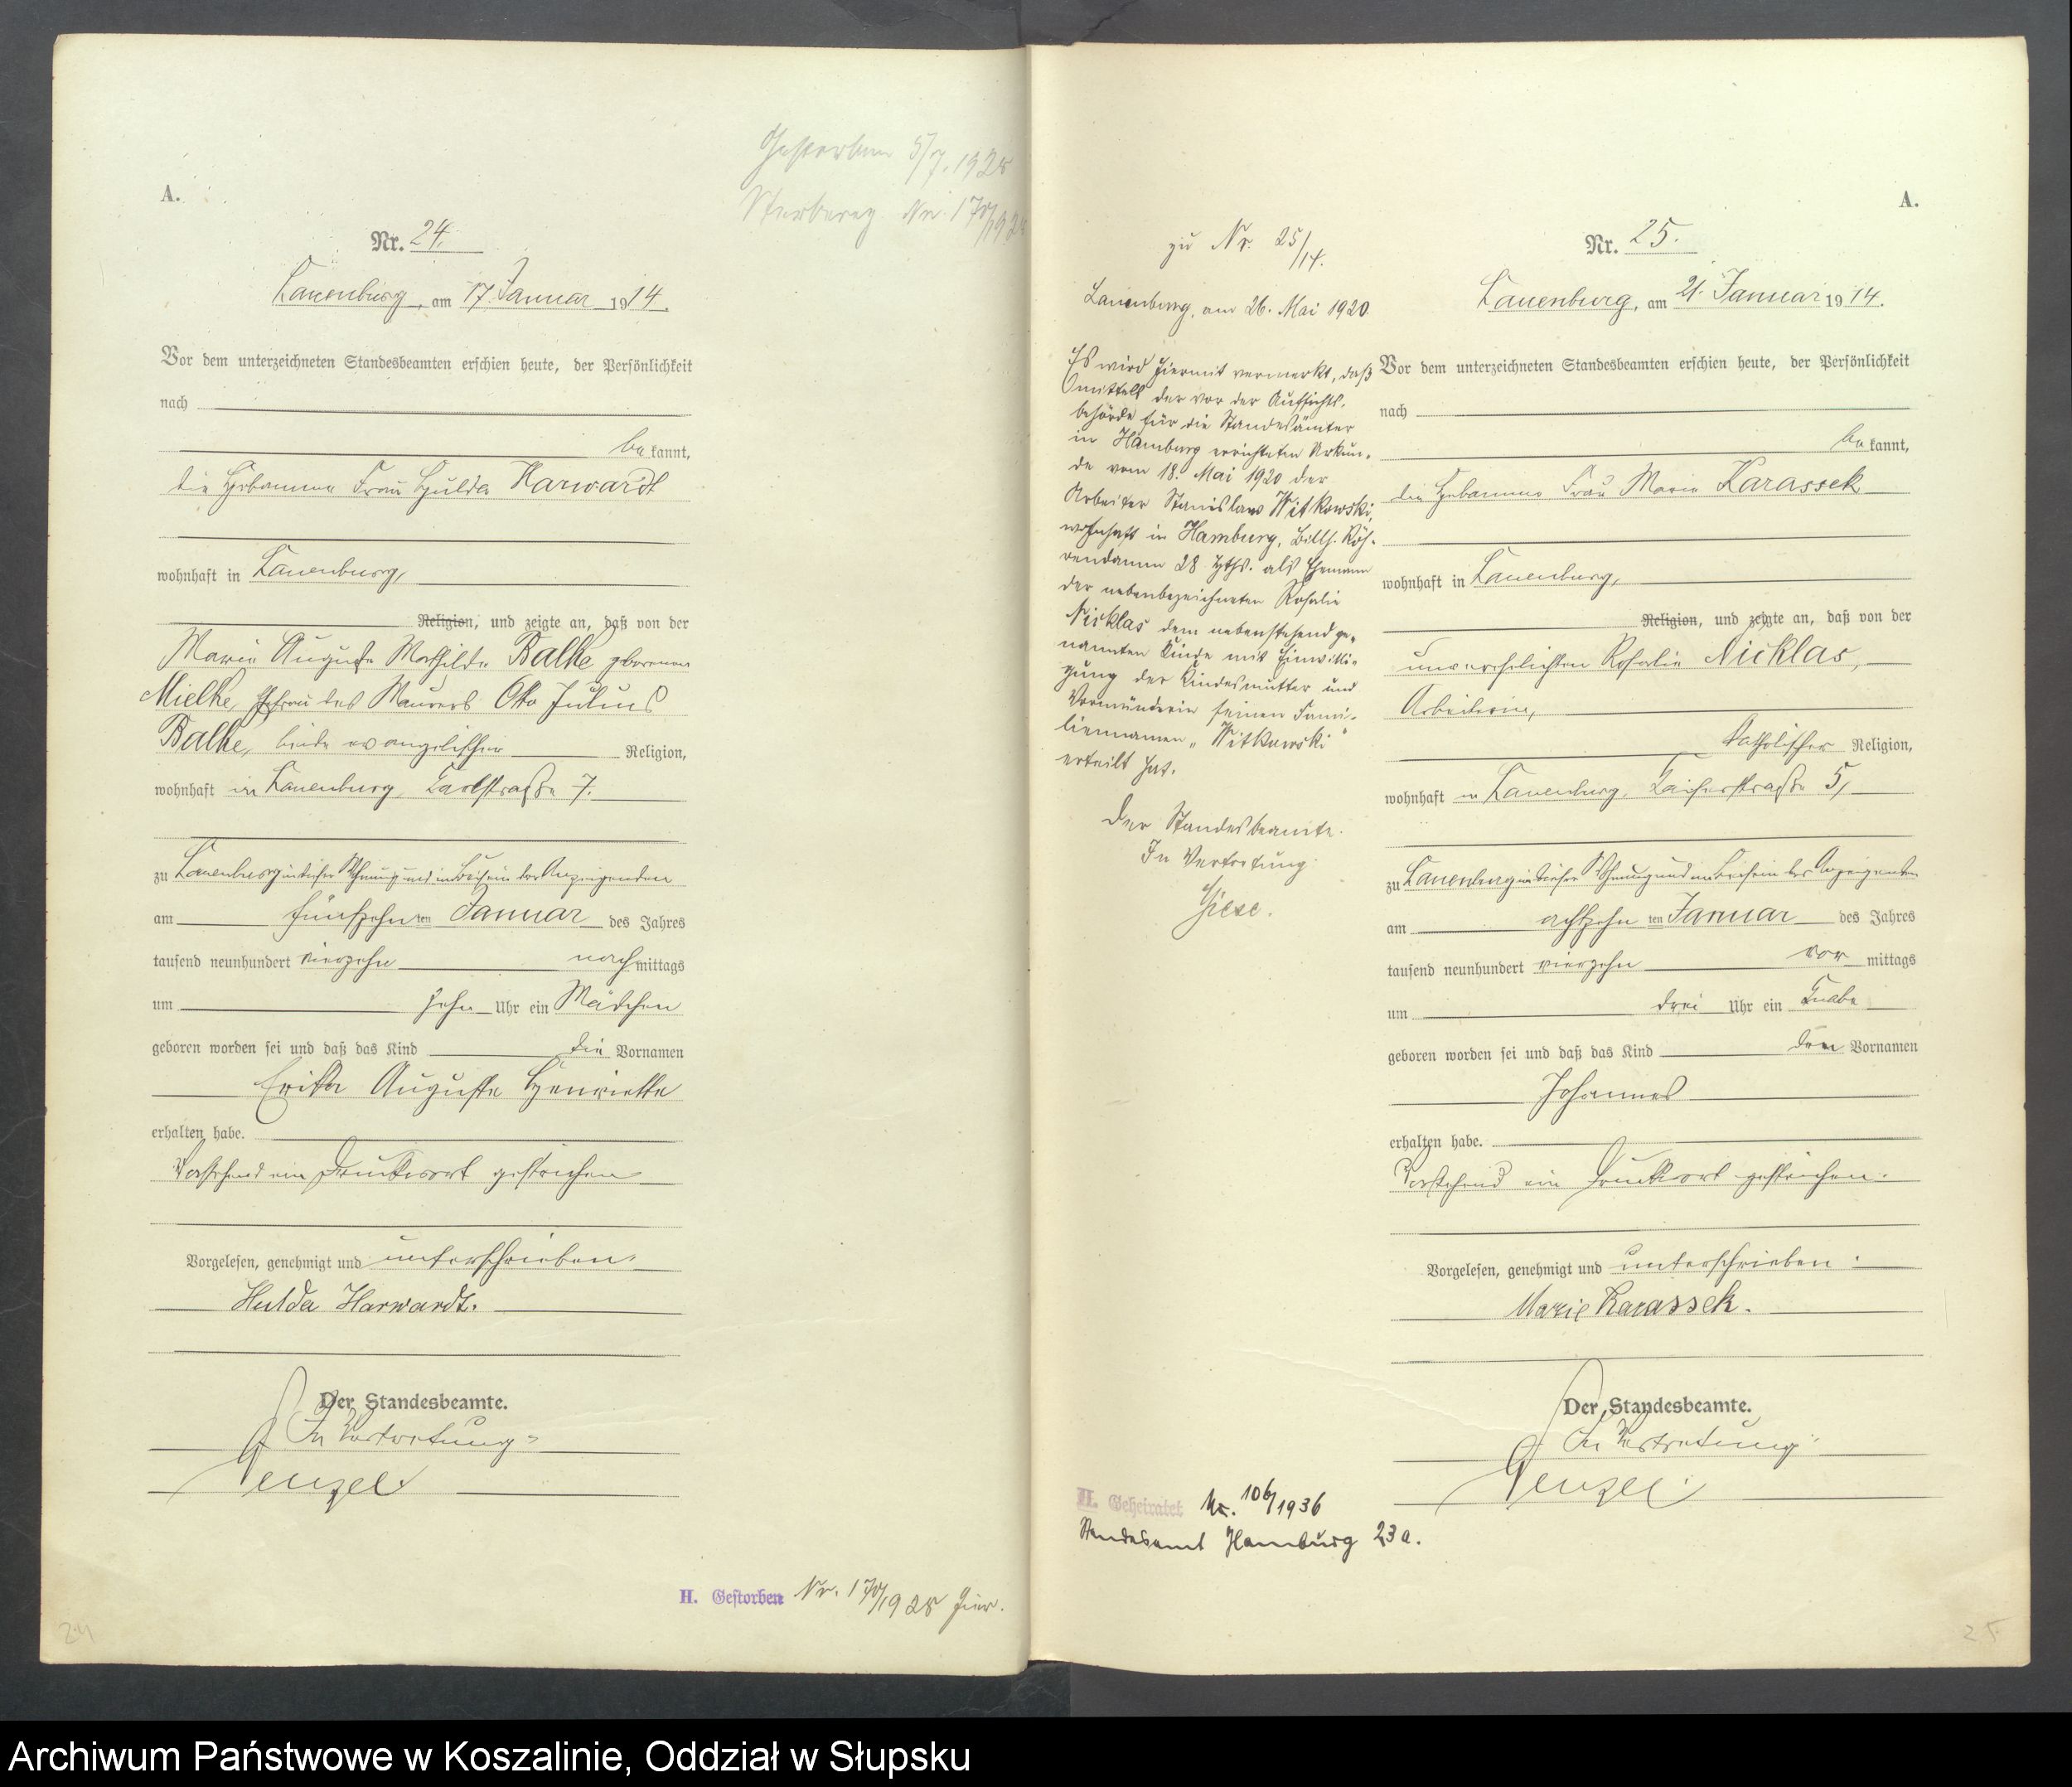 Gestorben 5/7. 1928
Nr. 170/1928
A.
Nr. 24.
Lauenburg, am 17. Januar 1914.
Vor dem unterzeichneten Standesbeamten erschien heute, der Persönlichkeit
nach
be kannt,
die Hebamme Frau Hulda Harwardt
wohnhaft in Lauenburg,
Religion, und zeigte an, daß von der
Marie Auguste Mathilde Balke geborenen
Mielke, Ehefrau des Maurers Otto Julius
Balke, beide evangelischer Religion,
wohnhaft in Lauenburg, Karlstraße 7.
zu Lauenburg in dieser Wohnung und in Beisein der Anzeigenden
am fünfzehn ten Januar des Jahres
tausend neunhundert vierzehn nach mittags
um zehn Uhr ein Mädchen
geboren worden sei und daß das Kind die Vornamen
Erika Auguste Henriette
erhalten habe.
Vorstehend ein Druckwort gestrichen
Vorgelesen, genehmigt und unterschrieben.
Hulda Harwardt.
Der Standesbeamte.
In Vertretung:
Wenzel.
H. Gestorben Nr. 170/1928 hier.
24
zu Nr. 25/14.
Lauenburg, am 26. Mai 1920
Es wird hiermit vermerkt, daß
mittels der vor der Aufsichts-
behörde für die Standesämter
in Hamburg errichteten Urkun-
de vom 18. Mai 1920 der
Arbeiter Stanislaus Witkowski,
wohnhaft in Hamburg, Billh. Röh-
rendamm 28 als Ehemann
der nebenbezeichneten Rosalie
Nicklas dem nebenstehend ge-
nannten Kinde mit Einwilli-
gung der Kindesmutter und
Vormünderin seinen Fami-
liennamen „Witkowski"
erteilt hat.
Der Standesbeamte.
In Vertretung:
Giese.
A.
Nr. 25.
Lauenburg, am 21. Januar 1914.
Vor dem unterzeichneten Standesbeamten erschien heute, der Persönlichkeit
nach
be kannt,
die Hebamme Frau Marie Karassek
wohnhaft in Lauenburg,
Religion, und zeigte an, daß von der
unverehelichten Rosalie Nicklas,
Arbeiterin,
katholischer Religion,
wohnhaft in Lauenburg, Kaiserstraße 5,
zu Lauenburg in dieser Wohnung und in Beisein der Anzeigenden
am achtzehn ten Januar des Jahres
tausend neunhundert vierzehn vor mittags
um drei Uhr ein Knabe
geboren worden sei und daß das Kind den Vornamen
Johannes
erhalten habe.
Vorstehend ein Druckwort gestrichen.
Vorgelesen, genehmigt und unterschrieben:
Marie Karassek.
Der Standesbeamte.
In Vertretung:
Wenzel.
II. Geheiratet Nr. 106/1936
Standesamt Hamburg 23a.
25
Archiwum Państwowe w Koszalinie, Oddział w Słupsku